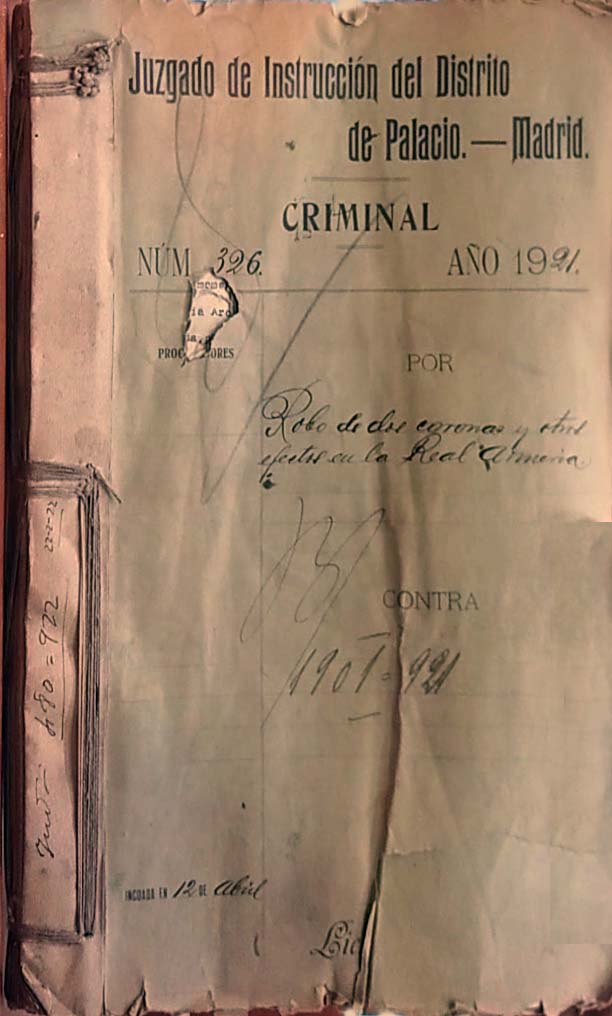 Juzgado de Instrucción del Distrito
de Palacio.—Madrid.
CRIMINAL
NÚM 326.
AÑO 1921.
ia Arc
PROC ORES
POR
Robo de dos coronas y otros
efectos en la Real Armeria
CONTRA
1901=921
INCOADA EN 12 DE Abril
Lic
480=922
22-2-22